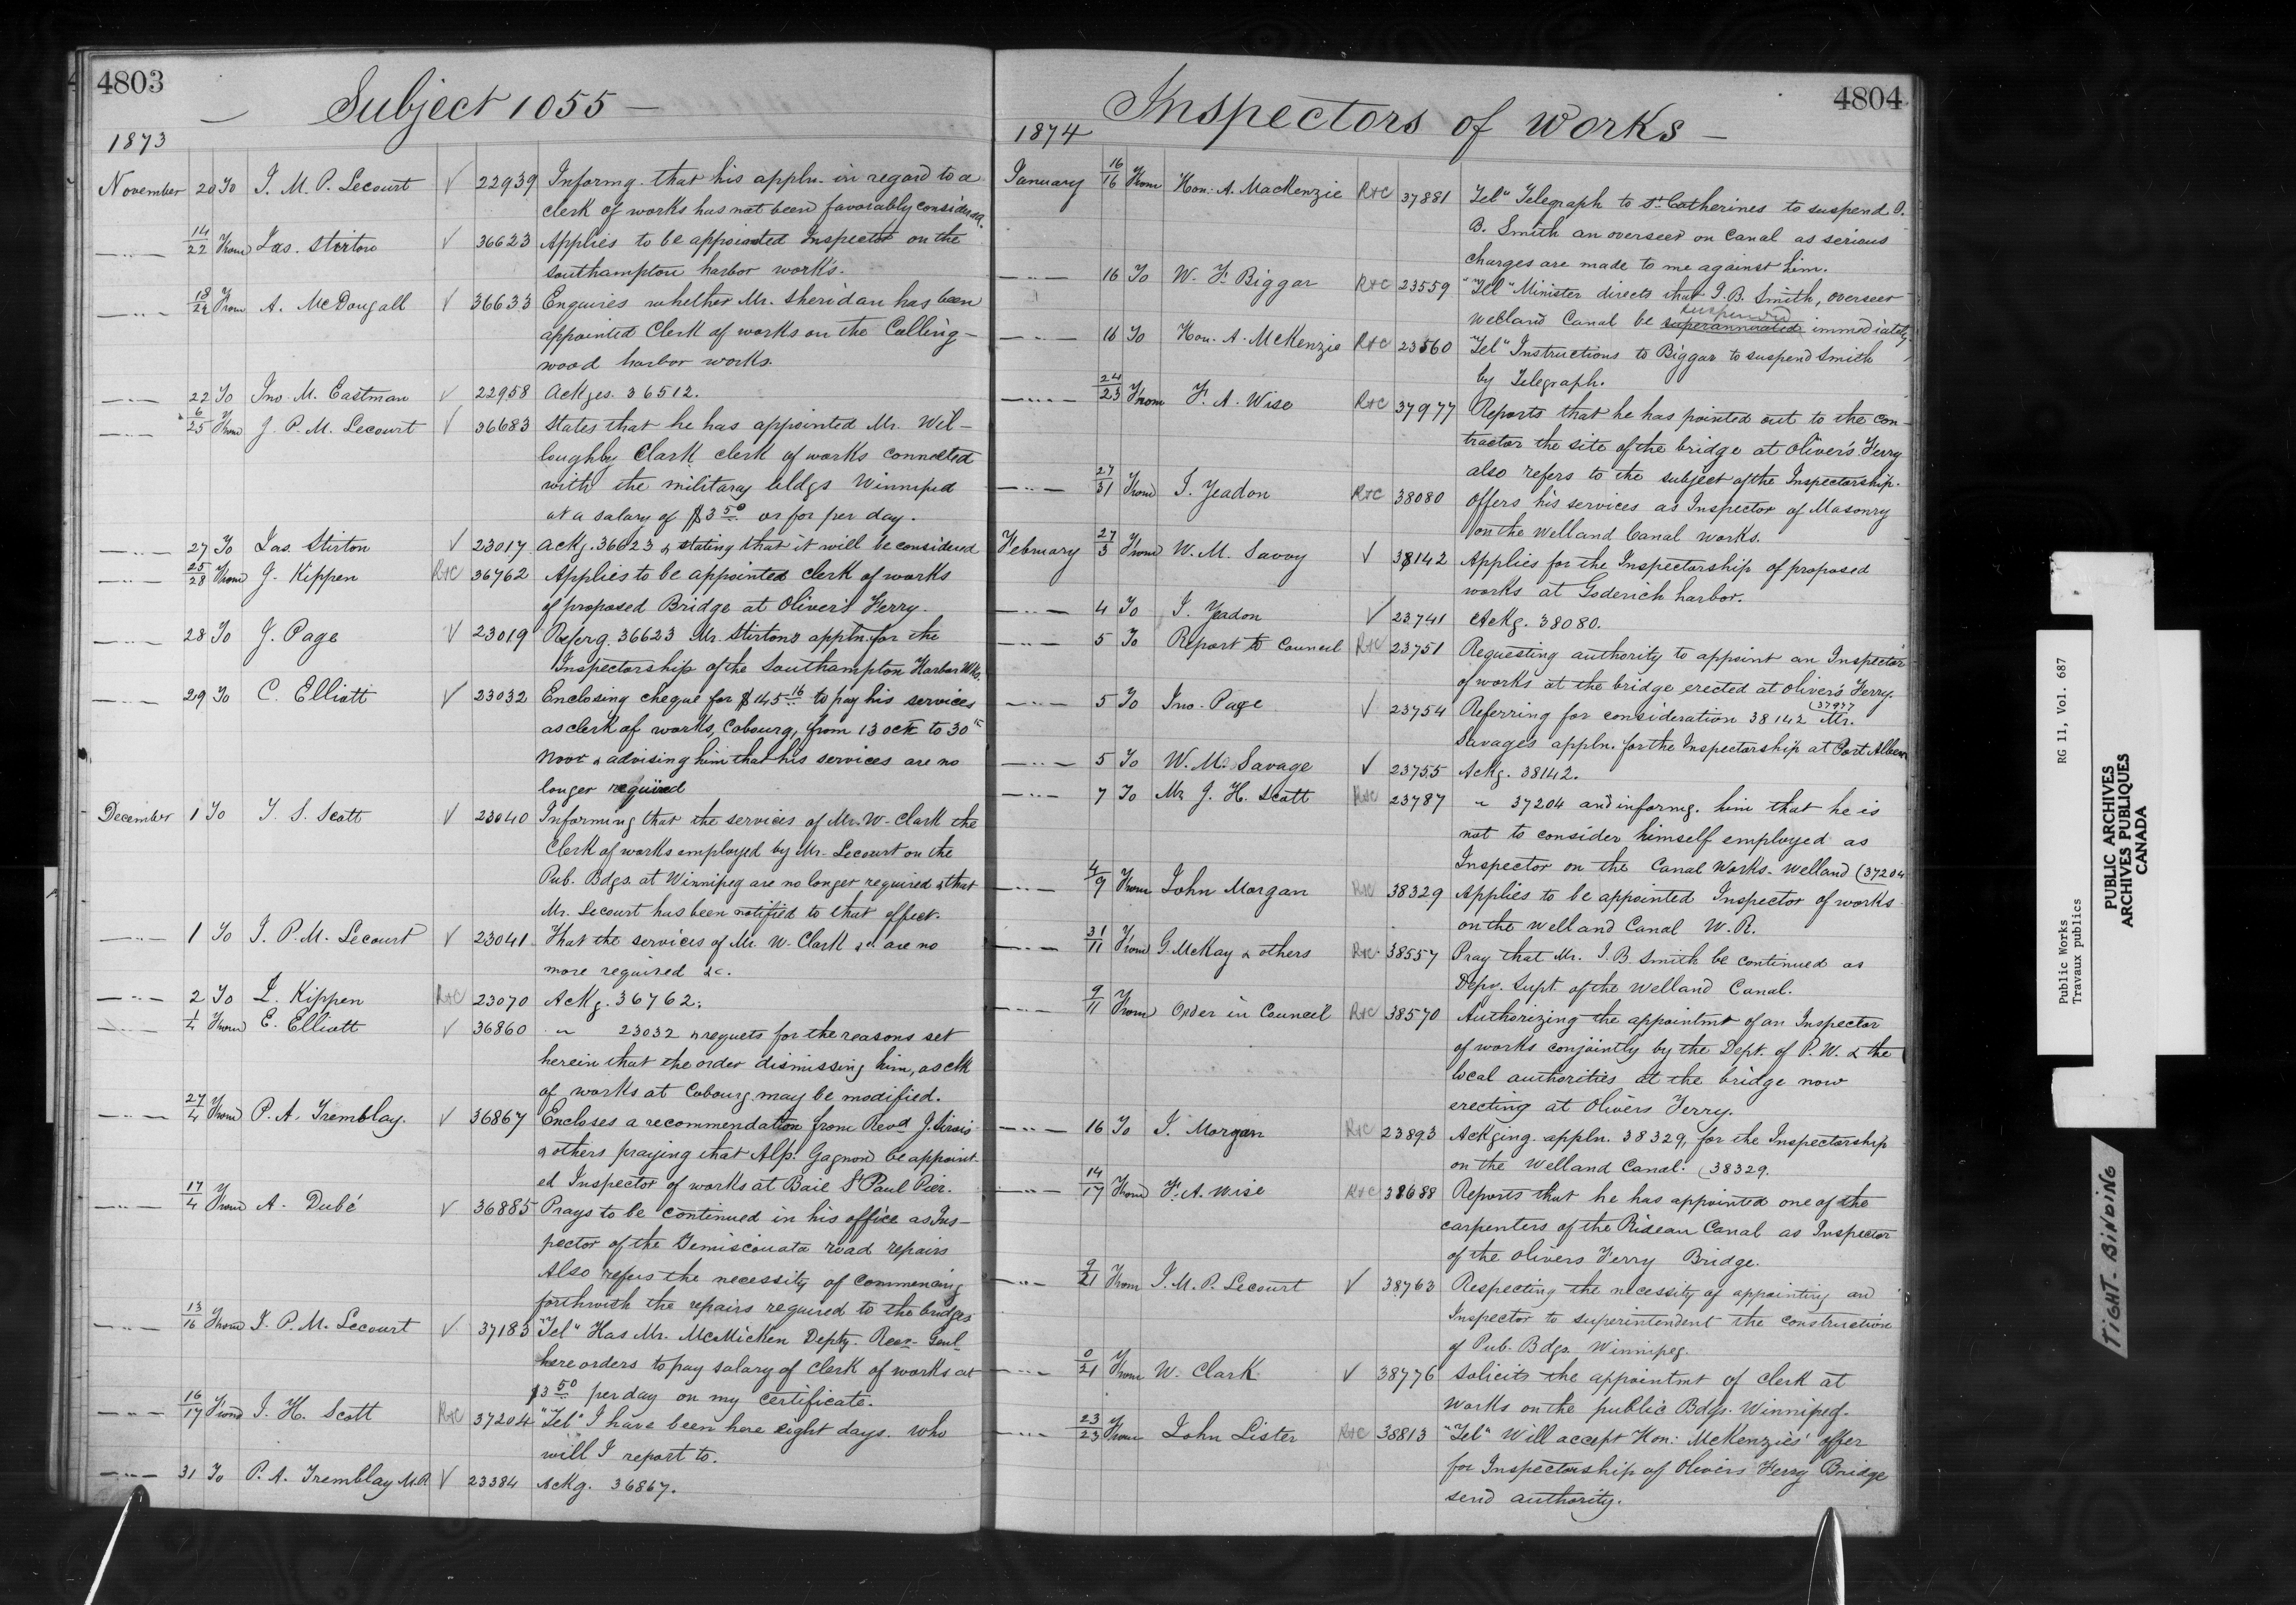 4803
Subject 1055 —
1873
November 20 To J. M. P. Lecourt √ 22939 Informg. that his appln. in regard to a
clerk of works has not been favorably considered.
—"— 14/22 From Jas. Stirton √ 36623 Applies to be appointed Inspector on the
Southampton harbor works.
—"— 18/22 From A. McDougall √ 36633 Enquires whether Mr. Sheridan has been
appointed Clerk of works on the Colling-
wood harbor works.
—"— 22 To Jno. M. Eastman √ 22958 Ackges. 36512.
—"— 6/25 From J. P. M. Lecourt √ 36683 States that he has appointed Mr. Wil-
loughby Clark clerk of works connected
with the military bldgs Winnipeg
at a salary of $3 50 or for per day.
—"— 27 To Jas. Stirton √ 23017 Ackg. 36623 & stating that it will be considered
—"— 25/28 From J. Kippen R+C 36762 Applies to be appointed clerk of works
of proposed Bridge at Oliver's Ferry.
—"— 28 To J. Page √ 23019 Referg. 36623 Mr. Stirtons appln. for the
Inspectorship of the Southampton Harbor Wks.
—"— 29 To C. Elliott √ 23032 Enclosing cheque for $145 16 to pay his services
as clerk of works, Cobourg, from 13 Octr to 30th
Novr & advising him that his services are no
longer required
December 1 To T. S. Scott √ 23040 Informing that the services of Mr. W. Clark the
Clerk of works employed by Mr. Lecourt on the
Pub. Bdgs. at Winnipeg are no longer required & that
Mr. Lecourt has been notified to that effect.
—"— 1 To J. P. M. Lecourt √ 23041 That the services of Mr. W. Clark &c are no
more required &c.
—"— 2 To J. Kippen R+C 23070 Ackg. 36762.
—"— 1/4 From E. Elliott √ 36860 " 23032 & requets for the reasons set
herein that the order dismissing him, as clk
of works at Cobourg may be modified.
—"— 27/4 From P. A. Tremblay. √ 36867 Encloses a recommendation from Revd J. Sirois
& others praying that Alp. Gagnon be appoint-
ed Inspector of works at Baie St Paul Pier.
—"— 17/4 From A. Dubé √ 36885 Prays to be continued in his office as Ins-
pector of the Temiscouata road repairs
Also refers the necessity of commencing
forthwith the repairs required to the bridges
—"— 13/16 From J. P. M. Lecourt √ 37183 "Tel" Has Mr. McMicken Depty. Recr. Genl
here orders to pay salary of clerk of works at
$3 50 per day on my certificate.
—"— 16/17 From J. H. Scott R+C 37204 "Tel" I have been here eight days. Who
will I report to.
—"— 31 To P. A. Tremblay M.P. √ 23384 Ackg. 36867.
4804
Inspectors of Works —
1874
January 16/16 From Hon. A. MacKenzie R+C 37881 Tel" Telegraph to St. Catherines to suspend J.
B. Smith an overseer on Canal as serious
charges are made to me against him.
—"— 16 To W. F. Biggar R+C 23559 "Tel" Minister directs that J. B. Smith, overseer
suspended
Welland Canal be superannuated immediately
—"— 16 To Hon. A. McKenzie R+C 23560 "Tel" Instructions to Biggar to suspend Smith
by Telegraph.
—"— 24/23 From F. A. Wise R+C 37977 Reports that he has pointed out to the con-
tractor the site of the bridge at Oliver's Ferry
also refers to the subject of the Inspectorship.
—"— 27/31 From J. Yeadon R+C 38080 Offers his services as Inspector of Masonry
on the Welland Canal works.
February 27/3 From W. M. Savoy √ 38142 Applies for the Inspectorship of proposed
works at Goderich harbor.
—"— 4 To J. Yeadon √ 23741 Ackg. 38080.
—"— 5 To Report to Council R+C 23751 Requesting authority to appoint an Inspector
of works at the bridge erected at Oliver's Ferry.
(37977
—"— 5 To Jno. Page √ 23754 Referring for consideration 38142 Mr.
Savages appln. for the Inspectorship at Port Albert
—"— 5 To W. M. Savage √ 23755 Ackg. 38142.
—"— 7 To Mr. J. H. Scott R+C 23787 " 37204 and informg. him that he is
not to consider himself employed as
Inspector on the Canal Works. Welland (37204
—"— 4/9 From John Morgan R+C 38329 Applies to be appointed Inspector of works
on the Welland Canal W. R.
—"— 31/11 From G. McKay & others R+C 38557 Pray that Mr. J. B. Smith be continued as
Depy. Supt. of the Welland Canal.
—"— 9/11 From Order in Council R+C 38570 Authorizing the appointmt of an Inspector
of works conjointly by the Dept. of P. W. & the
local authorities at the bridge now
erecting at Olivers Ferry.
—"— 16 To J. Morgan R+C 23893 Ackging. appln. 38329, for the Inspectorship
on the Welland Canal. (38329.
—"— 14/17 From F. A. Wise R+C 38688 Reports that he has appointed one of the
carpenters of the Rideau Canal as Inspector
of the Olivers Ferry Bridge.
—"— 9/21 From J. M. P. Lecourt √ 38763 Respecting the necessity of appointing an
Inspector to superintendent the construction
of Pub. Bdgs. Winnipeg.
—"— 0/21 From W. Clark √ 38776 Solicits the appointmt of clerk at
works on the public Bdgs. Winnipeg.
—"— 23/23 From John Lister R+C 38813 "Tel" Will accept Hon: McKenzies' offer
for Inspectorship of Olivers Ferry Bridge
send authority.
Public Works RG 11, Vol. 687
Travaux publics
PUBLIC ARCHIVES
ARCHIVES PUBLIQUES
CANADA
TIGHT BINDING